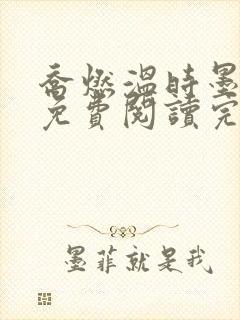 喬燃溫時墨
免費閱讀完
墨菲就是我